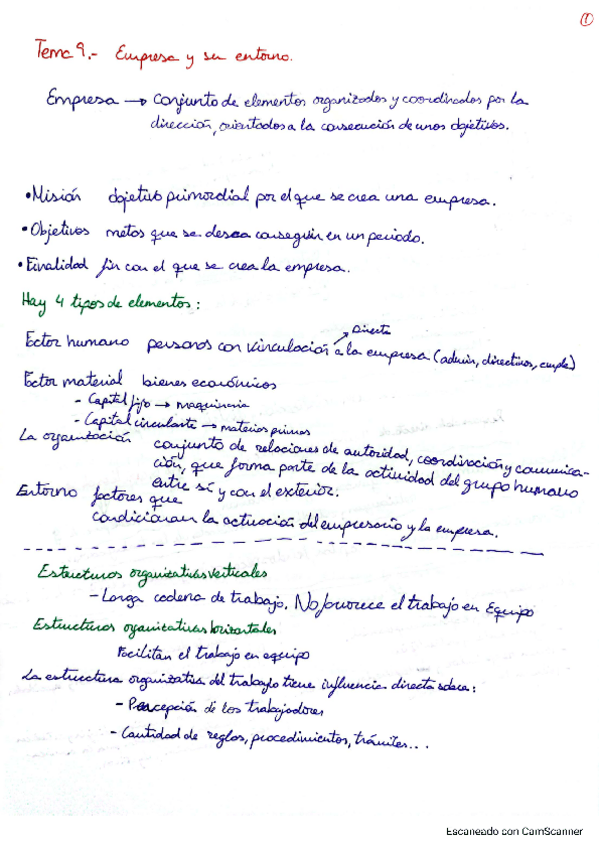 1
Tema 9.- Empresa y su entorno.
Empresa → Conjunto de elementos organizados y coordinados por la
dirección, orientados a la consecución de unos objetivos.
• Misión objetivo primordial por el que se crea una empresa.
• Objetivos metas que se desea conseguir en un periodo.
• Finalidad fin con el que se crea la empresa.
Hay 4 tipos de elementos:
Directa
Factor humano personas con vinculación a la empresa (admin, directivos, emple)
Factor material bienes económicos
- Capital fijo → maquinaria
- Capital circulante → materias primas
La organización conjunto de relaciones de autoridad, coordinación y comunica-
ción, que forma parte de la actividad del grupo humano
entre sí y con el exterior.
Entorno factores que
condicionan la actuación del empresario y la empresa.
Estructuras organizativas verticales
- Larga cadena de trabajo. No favorece el trabajo en Equipo
Estructuras organizativas horizontales
Facilitan el trabajo en equipo
La estructura organizativa del trabajo tiene influencia directa sobre:
- Percepción de los trabajadores
- Cantidad de reglas, procedimientos, trámites...
Escaneado con CamScanner